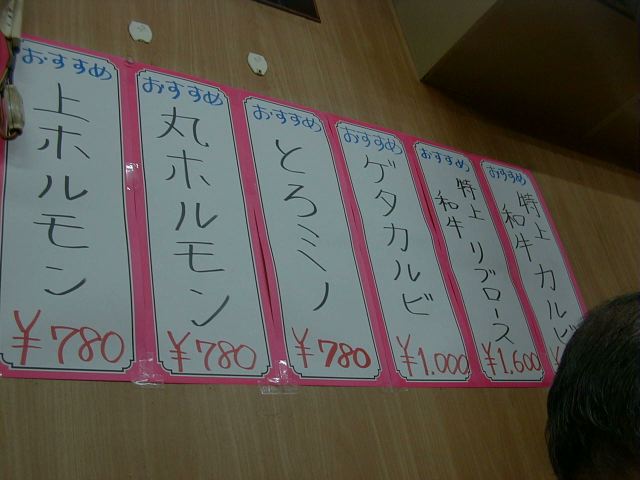 おすすめ
上ホルモン
¥780
おすすめ
丸ホルモン
¥780
おすすめ
とろミノ
¥780
おすすめ
ゲタカルビ
¥1.000
おすすめ
特上
和牛
リブロース
¥1.600
おすすめ
特上
和牛
カルビ
¥